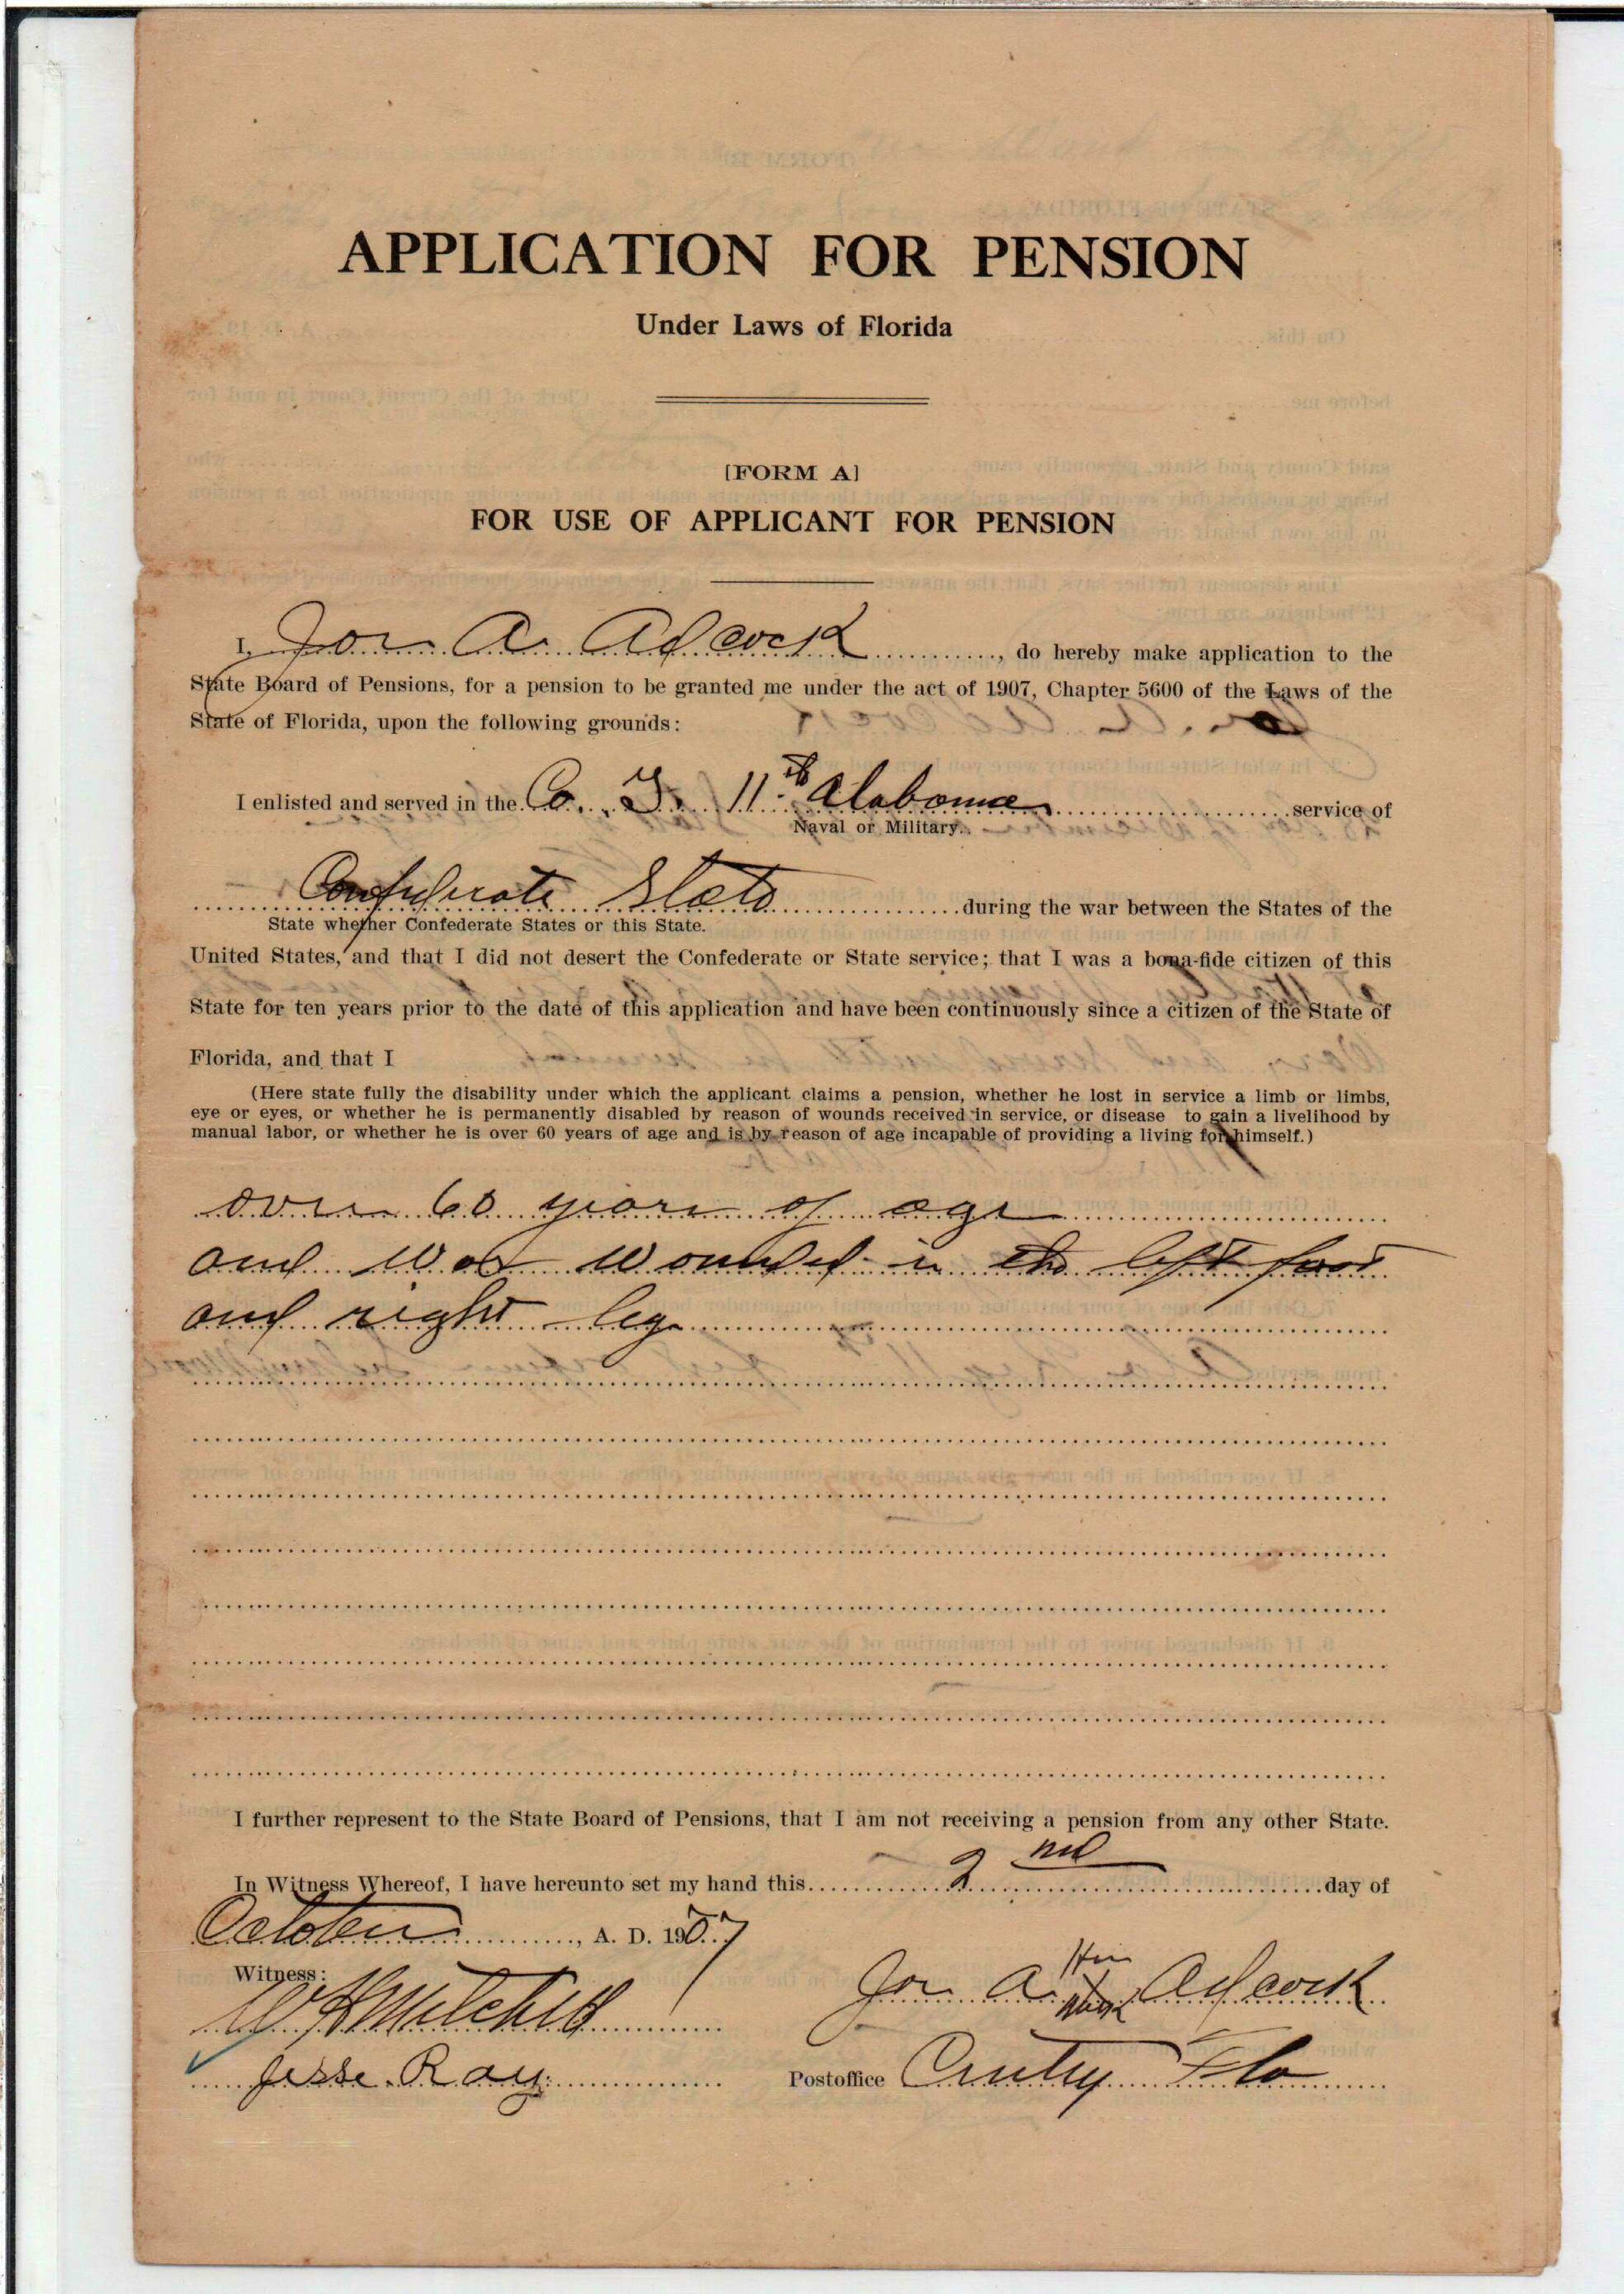 APPLICATION FOR PENSION
Under Laws of Florida
[FORM A]
FOR USE OF APPLICANT FOR PENSION
I, Jos. A. Adcock, do hereby make application to the
State Board of Pensions, for a pension to be granted me under the act of 1907, Chapter 5600 of the Laws of the
State of Florida, upon the following grounds:
I enlisted and served in the Co. 11th Alabama service of
Naval or Military.
Confederate States during the war between the States of the
State whether Confederate States or this State.
United States, and that I did not desert the Confederate or State service; that I was a bona-fide citizen of this
State for ten years prior to the date of this application and have been continuously since a citizen of the State of
Florida, and that I
(Here state fully the disability under which the applicant claims a pension, whether he lost in service a limb or limbs,
eye or eyes, or whether he is permanently disabled by reason of wounds received in service, or disease to gain a livelihood by
manual labor, or whether he is over 60 years of age and is by reason of age incapable of providing a living for himself.)
over 60 years of age
and was wounded in the left foot
and right leg
I further represent to the State Board of Pensions, that I am not receiving a pension from any other State.
In Witness Whereof, I have hereunto set my hand this 2nd day of
October, A. D. 1907
Witness:
His
Jos. A. X Adcock
mark
Jesse Ray
Postoffice Fla